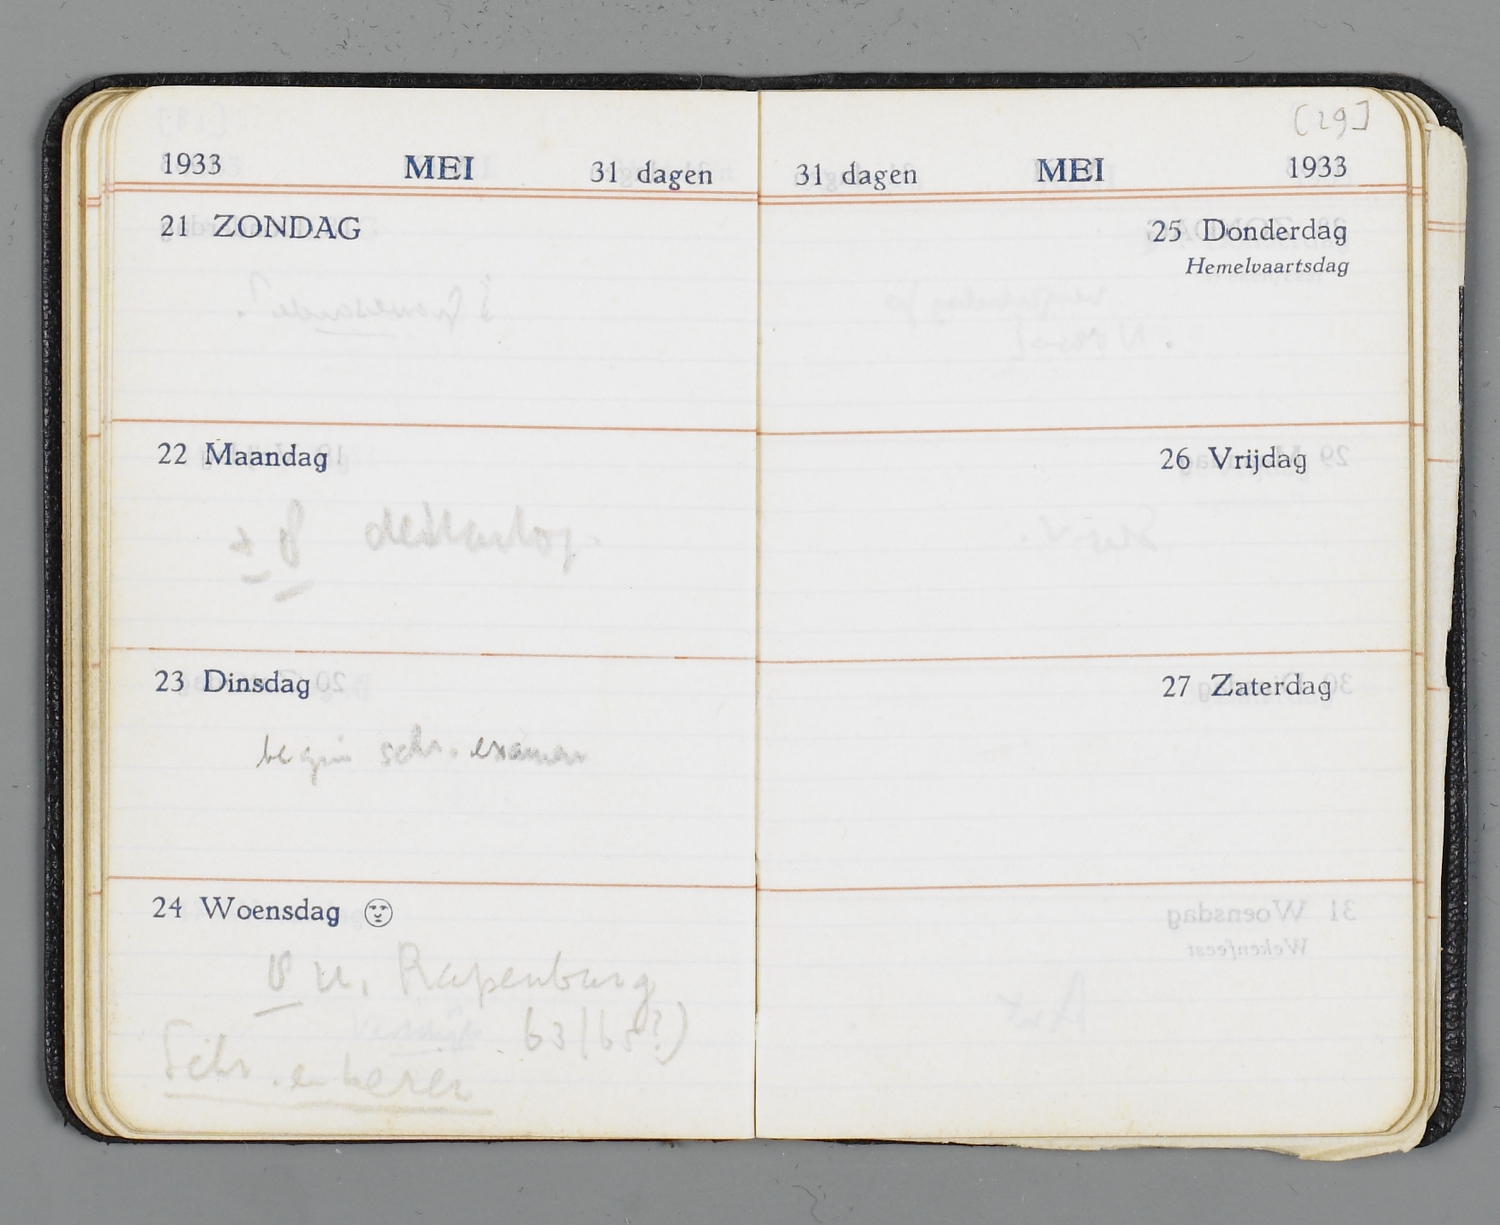 1933 MEI 31 dagen
21 ZONDAG
22 Maandag
± 8
23 Dinsdag
begin schr. examen
24 Woensdag
8 u. Rapenburg
63/65?)
Schr. en
[29]
31 dagen MEI 1933
25 Donderdag
Hemelvaartsdag
26 Vrijdag
27 Zaterdag